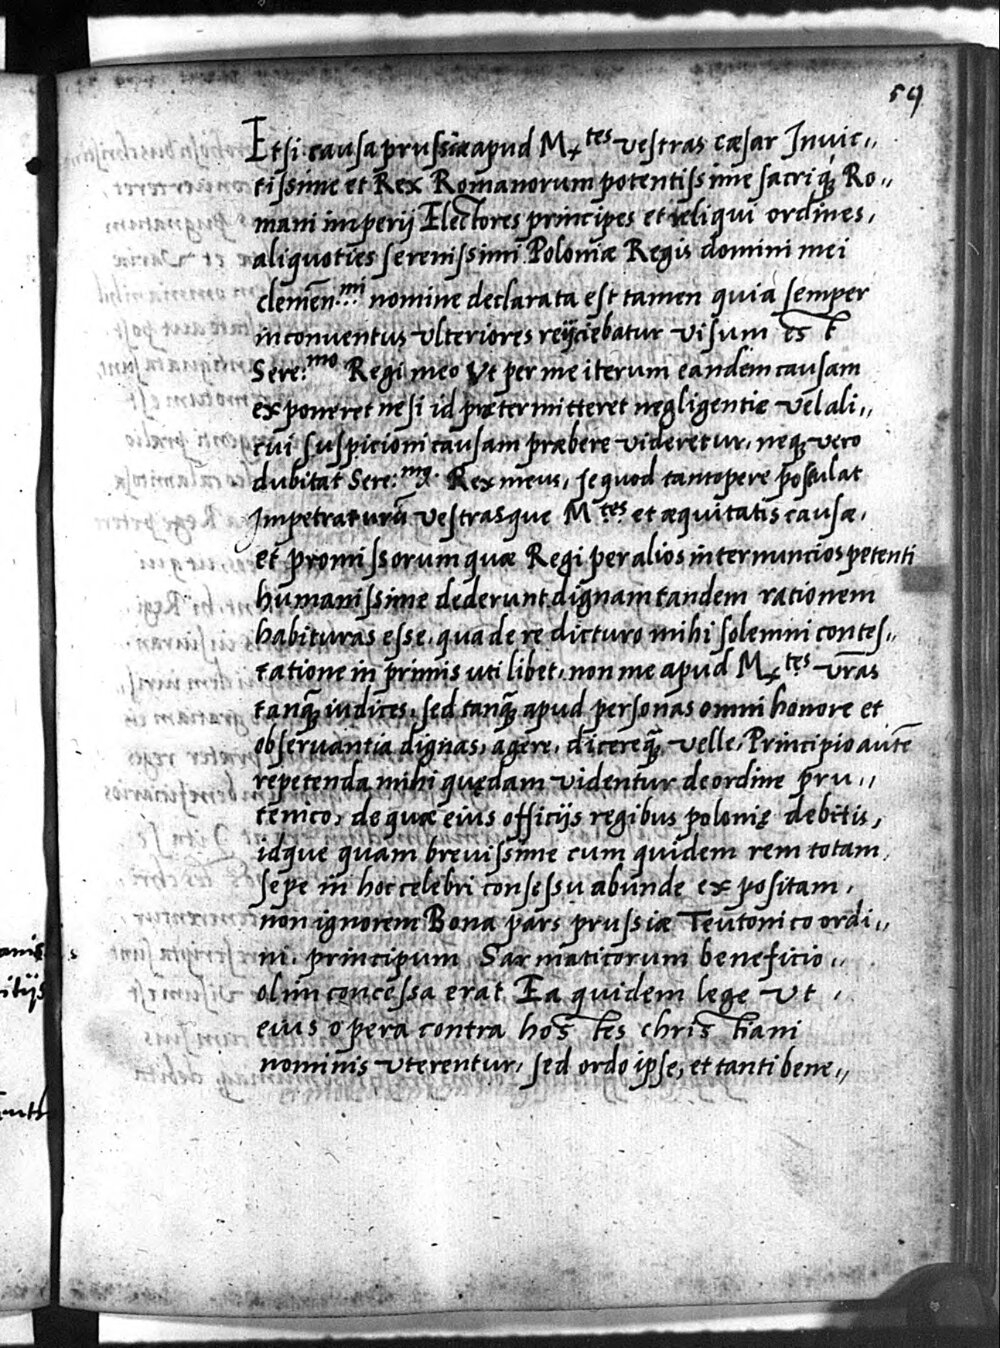 59
Etsi causa prussiæ apud M.tes vestras cæsar Invic„
tissime et Rex Romanorum potentissime sacriq́ꝫ Ro„
mani imperij Electores principes et reliqui ordines,
aliquoties serenissimi Poloniæ Regis domini mei
clemen̄.mi nomine declarata est tamen quia semper
in conventus vlteriores reijciebatur visum est
Sere:mo Regi meo Vt per me iterum eandem causam
exponeret ne si id prætermitteret negligentiæ vel ali„
cui suspicioni causam præbere videretur, neqꝫ vero
dubitat Sere:mꝰ Rex meus, se quod tantopere postulat
Impetraturū vestrasque M.tes et æquitatis causæ,
et promissorum quæ Regi per alios internuncios petenti
humanissime dederunt dignam tandem rationem
habituras esse, qua de re dicturo mihi solemni contes„
tatione in primis uti libet, non me apud M.tes vr̄as
tanqꝫ iudices, sed tanqꝫ apud personas omni honore et
observantia dignas, agere, dicereqꝫ, velle, Principio autē
repetenda mihi quędam videntur de ordine pru„
tenico, de quæ eius officijs regibus polonię debitis,
idque quam brevissime cum quidem rem totam
sepe in hoc celebri consessu abunde expositam,
non ignorem Bona pars prussiæ Teutonico ordi„
ni, principum Sarmaticorum beneficio„
olim concessa erat Ea quidem lege Vt,
eius opera contra hostes christiani
nominis vterentur, sed ordo ipse, et tanti bene„
anis
itijs